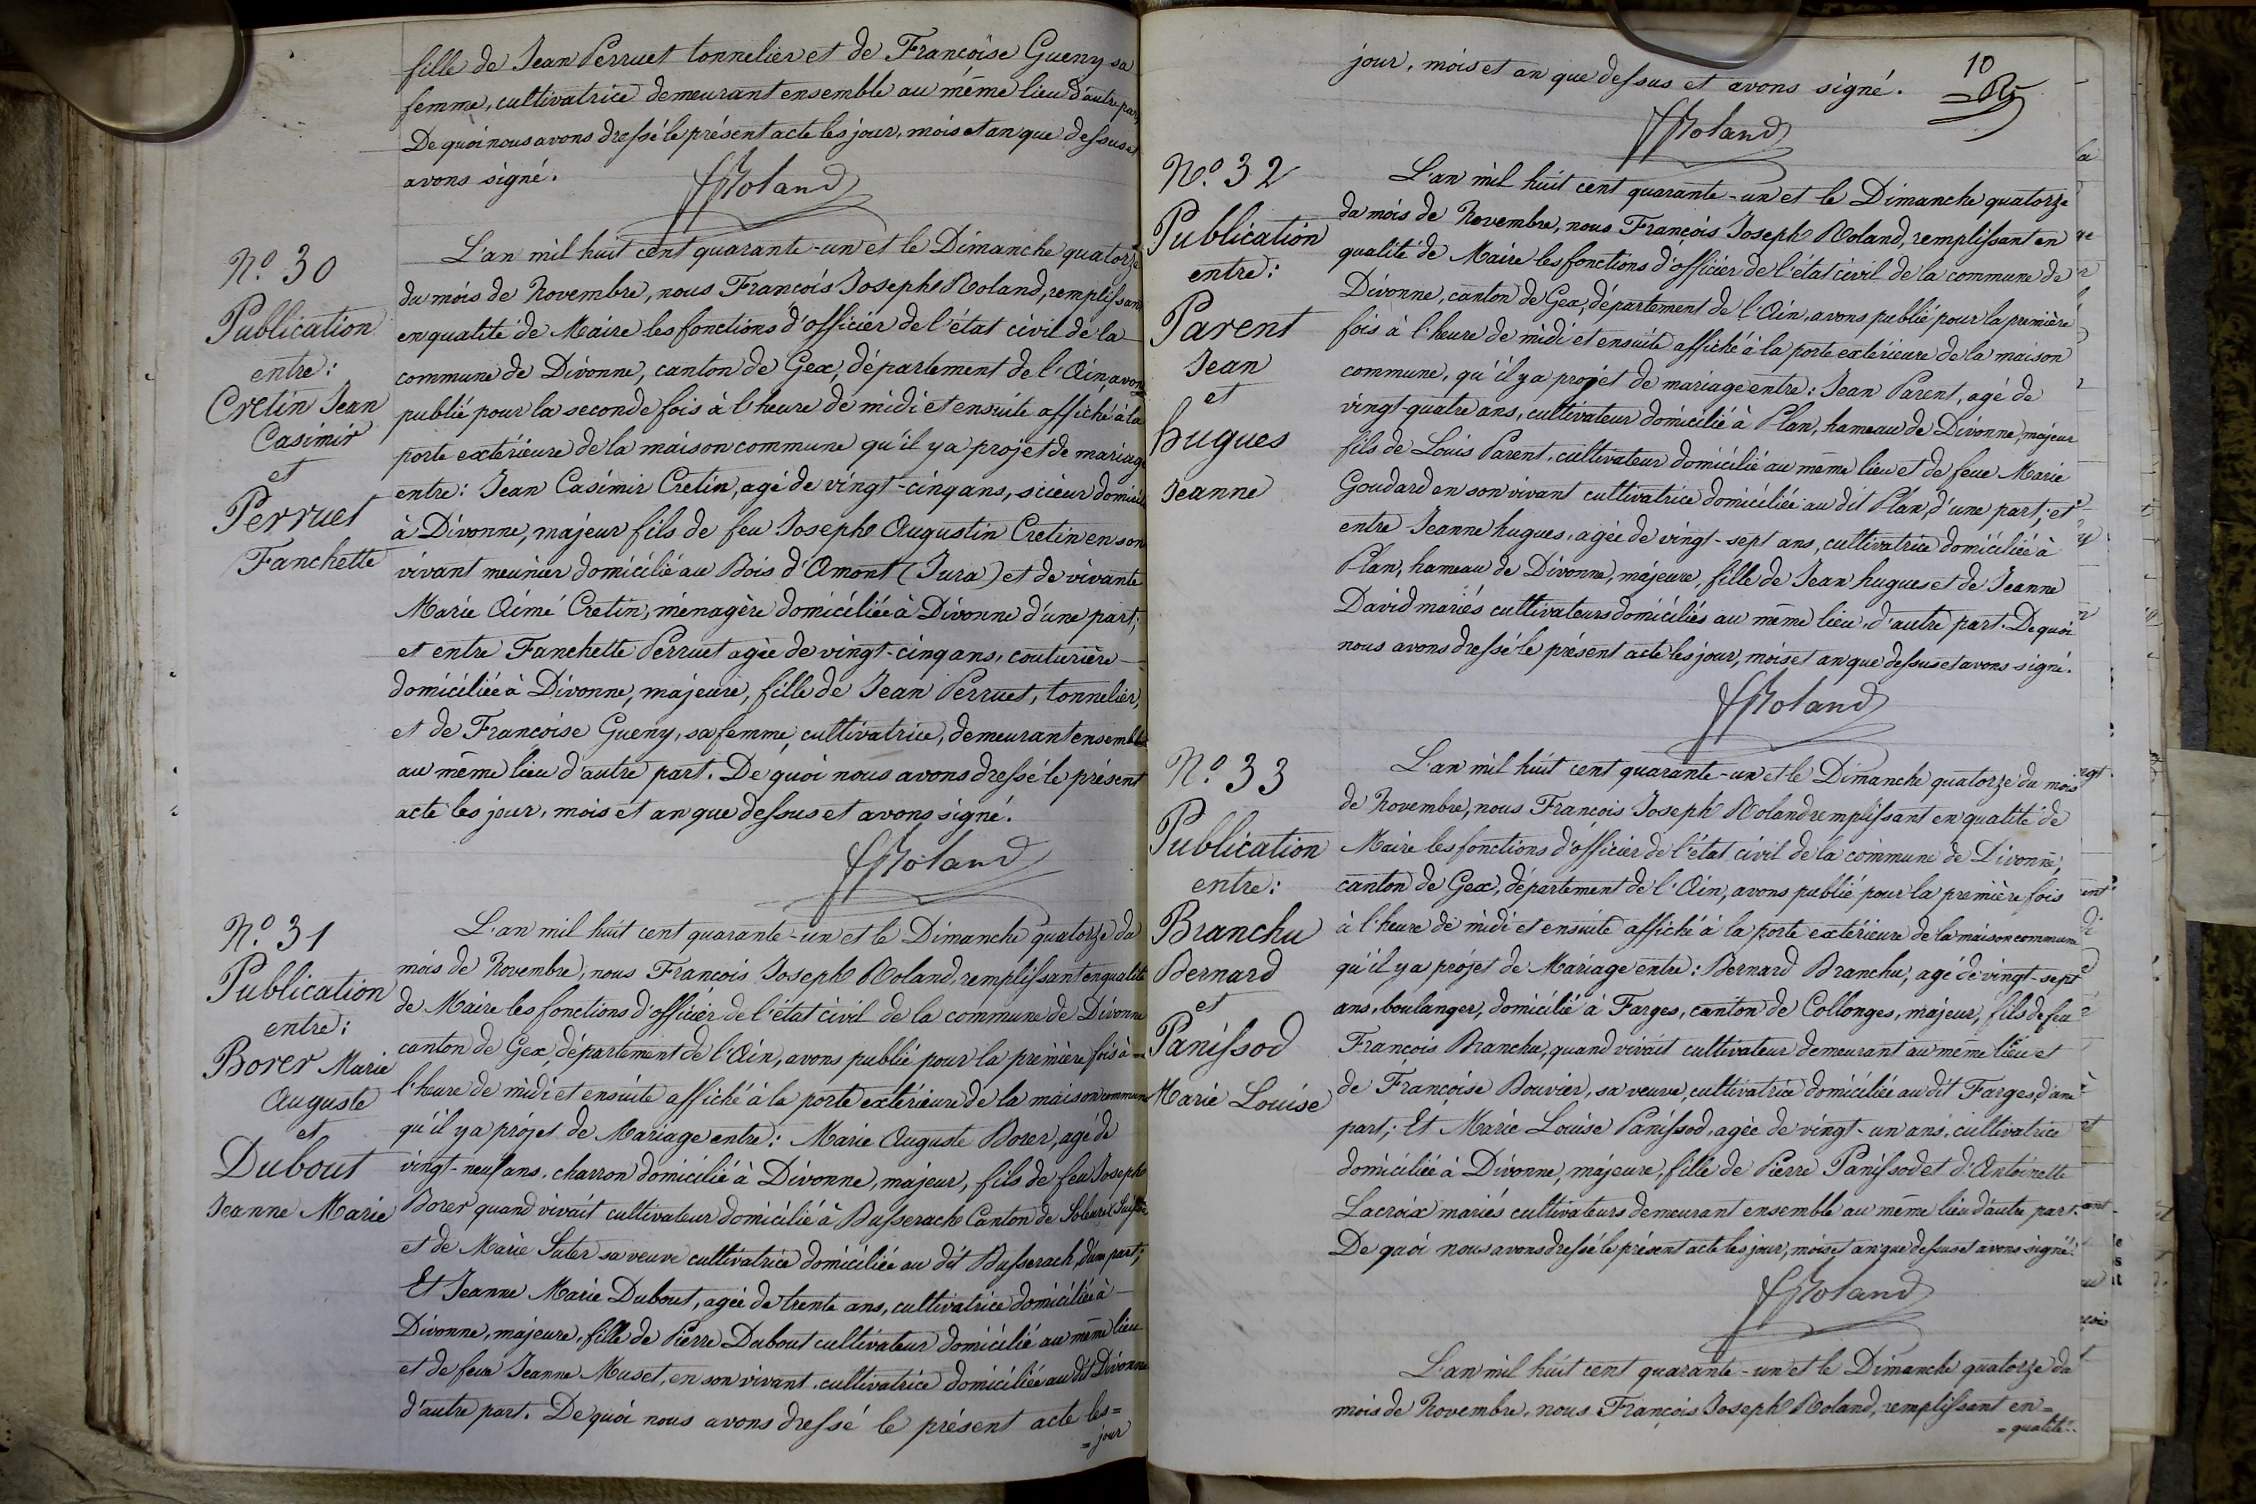 fille de Jean Perruet tonnelier et de Françoise Gueny sa
femme, cultivatrice demeurant ensemble au même lieu d'autre part,
De quoi nous avons dressé le présent acte les jour, mois et an que dessus et
avons signé.
FJRoland
N.o 30
Publication
entre:
Cretin Jean
Casimir
et
Perruet
Fanchette
L'an mil huit cent quarante-un et le Dimanche quatorze
du mois de Novembre, nous François Joseph Roland, remplissant
en qualité de Maire les fonctions d'officier de l'état civil de la
commune de Divonne, canton de Gex, département de l'Ain, avons
publié pour la seconde fois à l'heure de midi et ensuite affiché à la
porte extérieure de la maison commune qu'il y a projet de mariage
entre: Jean Casimir Cretin, agé de vingt-cinq ans, scieur domicilié
à Divonne, majeur fils de feu Joseph Augustin Cretin en son
vivant meunier domicilié au Bois d'Amont (Jura) et de vivante
Marie Aimé Cretin, ménagère domiciliée à Divonne d'une part;
et entre Fanchette Perruet agée de vingt-cinq ans, couturière
domiciliée à Divonne, majeure, fille de Jean Perruet, tonnelier,
et de Françoise Gueny, sa femme, cultivatrice, demeurant ensemble
au même lieu d'autre part. De quoi nous avons dressé le présent
acte les jour, mois et an que dessus et avons signé.
FJRoland
N.o 31
Publication
entre:
Borer Marie
Auguste
et
Dubout
Jeanne Marie
L'an mil huit cent quarante-un et le Dimanche quatorze du
mois de Novembre, nous François Joseph Roland, remplissant en qualité
de Maire les fonctions d'officier de l'état civil de la commune de Divonne
canton de Gex, département de l'Ain, avons publié pour la première fois à
l'heure de midi et ensuite affiché à la porte extérieure de la maison commune
qu'il y a projet de Mariage entre: Marie Auguste Borer, agé de
vingt-neuf ans, charron domicilié à Divonne, majeur, fils de feu Joseph
Borer quand vivait cultivateur domicilié à Busserach Canton de Soleure Suisse
et de Marie Suter sa veuve cultivatrice domiciliée au dit Busserach, d'une part;
Et Jeanne Marie Dubout, agée de trente ans, cultivatrice domiciliée à
Divonne, majeure, fille de Pierre Dubout cultivateur domicilié au même lieu
et de feue Jeanne Muset, en son vivant, cultivatrice domiciliée au dit Divonne
d'autre part. De quoi nous avons dressé le présent acte les=
=jour
10
jour, mois et an que dessus et avons signé.
FJRoland
N.o 32
Publication
entre:
Parent
Jean
et
hugues
Jeanne
L'an mil huit cent quarante-un et le Dimanche quatorze
du mois de Novembre, nous François Joseph Roland, remplissant en
qualité de Maire les fonctions d'officier de l'état civil de la commune de
Divonne, canton de Gex, département de l'Ain, avons publié pour la première
fois à l'heure de midi et ensuite affiché à la porte extérieure de la maison
commune, qu'il y a projet de mariage entre: Jean Parent, agé de
vingt-quatre ans, cultivateur domicilié à Plan, hameau de Divonne, majeur
fils de Louis Parent, cultivateur domicilié au même lieu et de feue Marie
Goudard en son vivant cultivatrice domiciliée au dit Plan, d'une part; et
entre Jeanne hugues, agée de vingt-sept ans, cultivatrice domiciliée à
Plan, hameau de Divonne, majeure, fille de Jean hugues et de Jeanne
David mariés cultivateurs domiciliés au même lieu, d'autre part. De quoi
nous avons dressé le présent acte les jour, mois et an que dessus et avons signé.
FJRoland
N.o 33
Publication
entre:
Branchu
Bernard
et
Panissod
Marie Louise
L'an mil huit cent quarante-un et le Dimanche quatorze du mois
de Novembre, nous François Joseph Roland remplissant en qualité de
Maire les fonctions d'officier de l'état civil de la commune de Divonne,
canton de Gex, département de l'Ain, avons publié pour la première fois
à l'heure de midi et ensuite affiché à la porte extérieure de la maison commune
qu'il y a projet de Mariage entre: Bernard Branchu, agé de vingt-sept
ans, boulanger, domicilié à Farges, canton de Collonges, majeur, fils de feu
François Branchu, quand vivait cultivateur demeurant au même lieu et
de Françoise Bouvier, sa veuve, cultivatrice domiciliée au dit Farges, d'une
part; Et Marie Louise Panissod, agée de vingt-un ans, cultivatrice
domiciliée à Divonne, majeure, fille de Pierre Panissod et d'Antoinette
Lacroix mariés cultivateurs demeurant ensemble au même lieu d'autre part.
De quoi nous avons dressé le présent acte les jour, mois et an que dessus et avons signé.
FJRoland
L'an mil huit cent quarante-un et le Dimanche quatorze du
mois de Novembre, nous François Joseph Roland, remplissant en=
=qualité